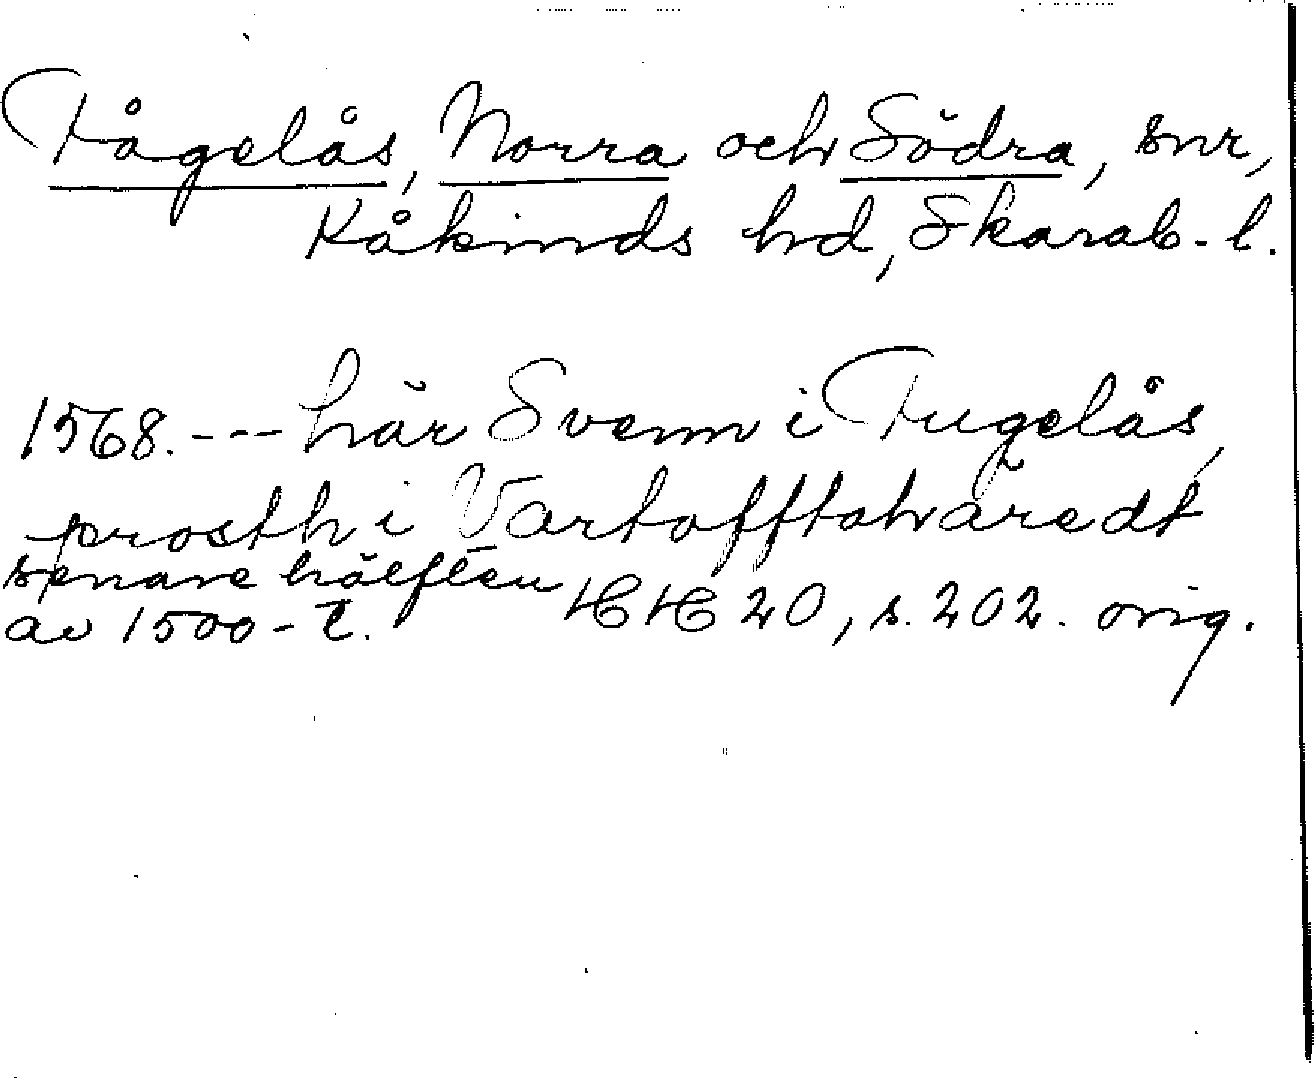 Fågelås, Norra och Södra, snr,
Kåkinds hd, Skarab-l.
1568. --- här Svenn i Fugelås,
prosth i Vartofftahäredt
senare hälften
av 1500-t. HH 20, s. 202. orig.